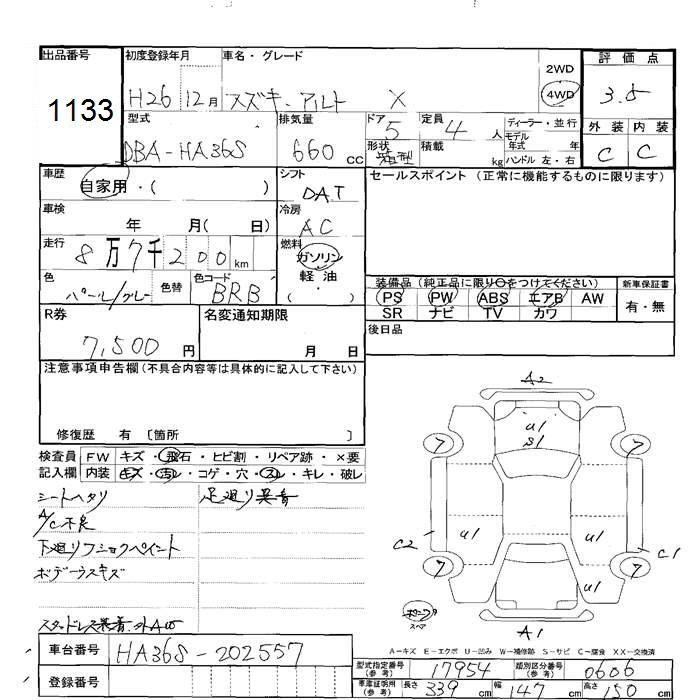 出品番号 1133
初度登録年月 H26 12月
車名・グレード スズキ・アルト X
2WD 4WD
評価点 3.5
型式 DBA-HA36S
排気量 660 cc
ドア 5
形状 箱型
定員 4 人
積載 kg
ディーラー・並行
モデル年式 年
ハンドル 左・右
外装 内装
C C
車歴 自家用・( )
シフト DAT
セールスポイント (正常に機能するものに限ります)
車検 年 月( 日)
冷房 AC
走行 8万7千200km
燃料 ガソリン・軽油
色 パール/グレー
色替
色コード BRB
装備品 (純正品に限り○をつけてください)
新車保証書
PS PW ABS エアB AW
有・無
SR ナビ TV カワ
後日品
R券 7,500 円
名変通知期限 月 日
注意事項申告欄 (不具合内容等は具体的に記入して下さい)
修復歴 有 〔箇所 〕
検査員記入欄
FW キズ・飛石・ヒビ割・リペア跡・×要
内装 キズ・汚れ・コゲ・穴・スレ・キレ・破レ
シートヘタリ
足廻り異音
A/C不良
下廻りフショクペイント
ボデーウスキズ
スタッドレス装着.外AW
A2
u1
S1
7 7
C2 u1 u1 C1
7 7
スペア
A1
A-キズ E-エクボ U-凹み W-補修跡 S-サビ C-腐食 XX-交換済
車台番号 HA36S-202557
登録番号
型式指定番号(参考) 17954
類別区分番号(参考) 0606
車庫証明用(参考) 長さ 339 cm 幅 147 cm 高さ 150 cm